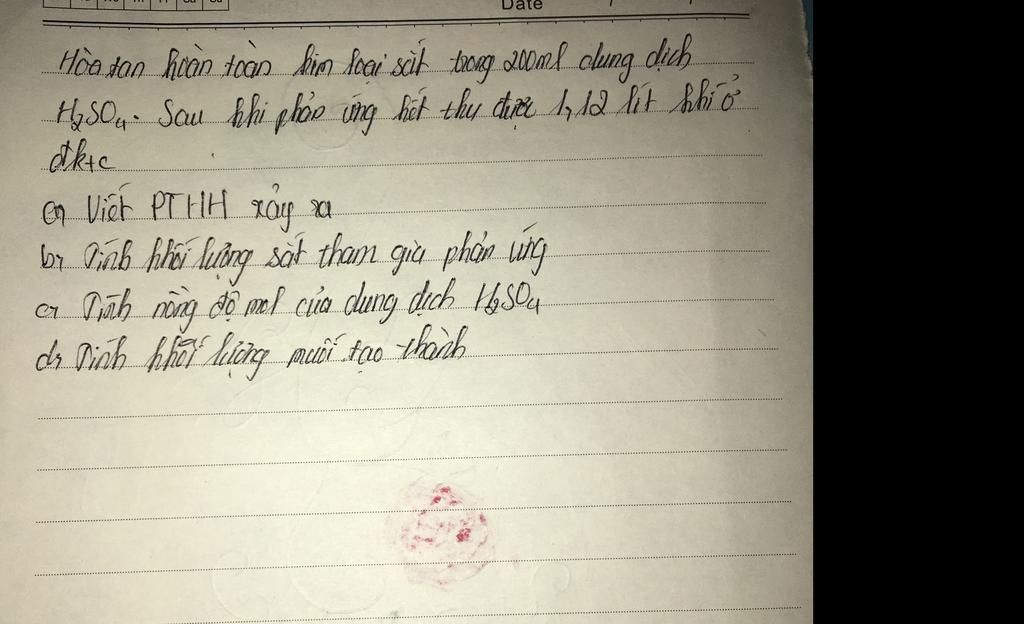 Date / /
Hòa tan hoàn toàn kim loại sắt trong 200ml dung dịch
H₂SO₄. Sau khi phản ứng hết thu được 1,12 lít khí ở
đktc
a, Viết PTHH xảy ra
b, Tính khối lượng sắt tham gia phản ứng
c, Tính nồng độ mol của dung dịch H₂SO₄
d, Tính khối lượng muối tạo thành